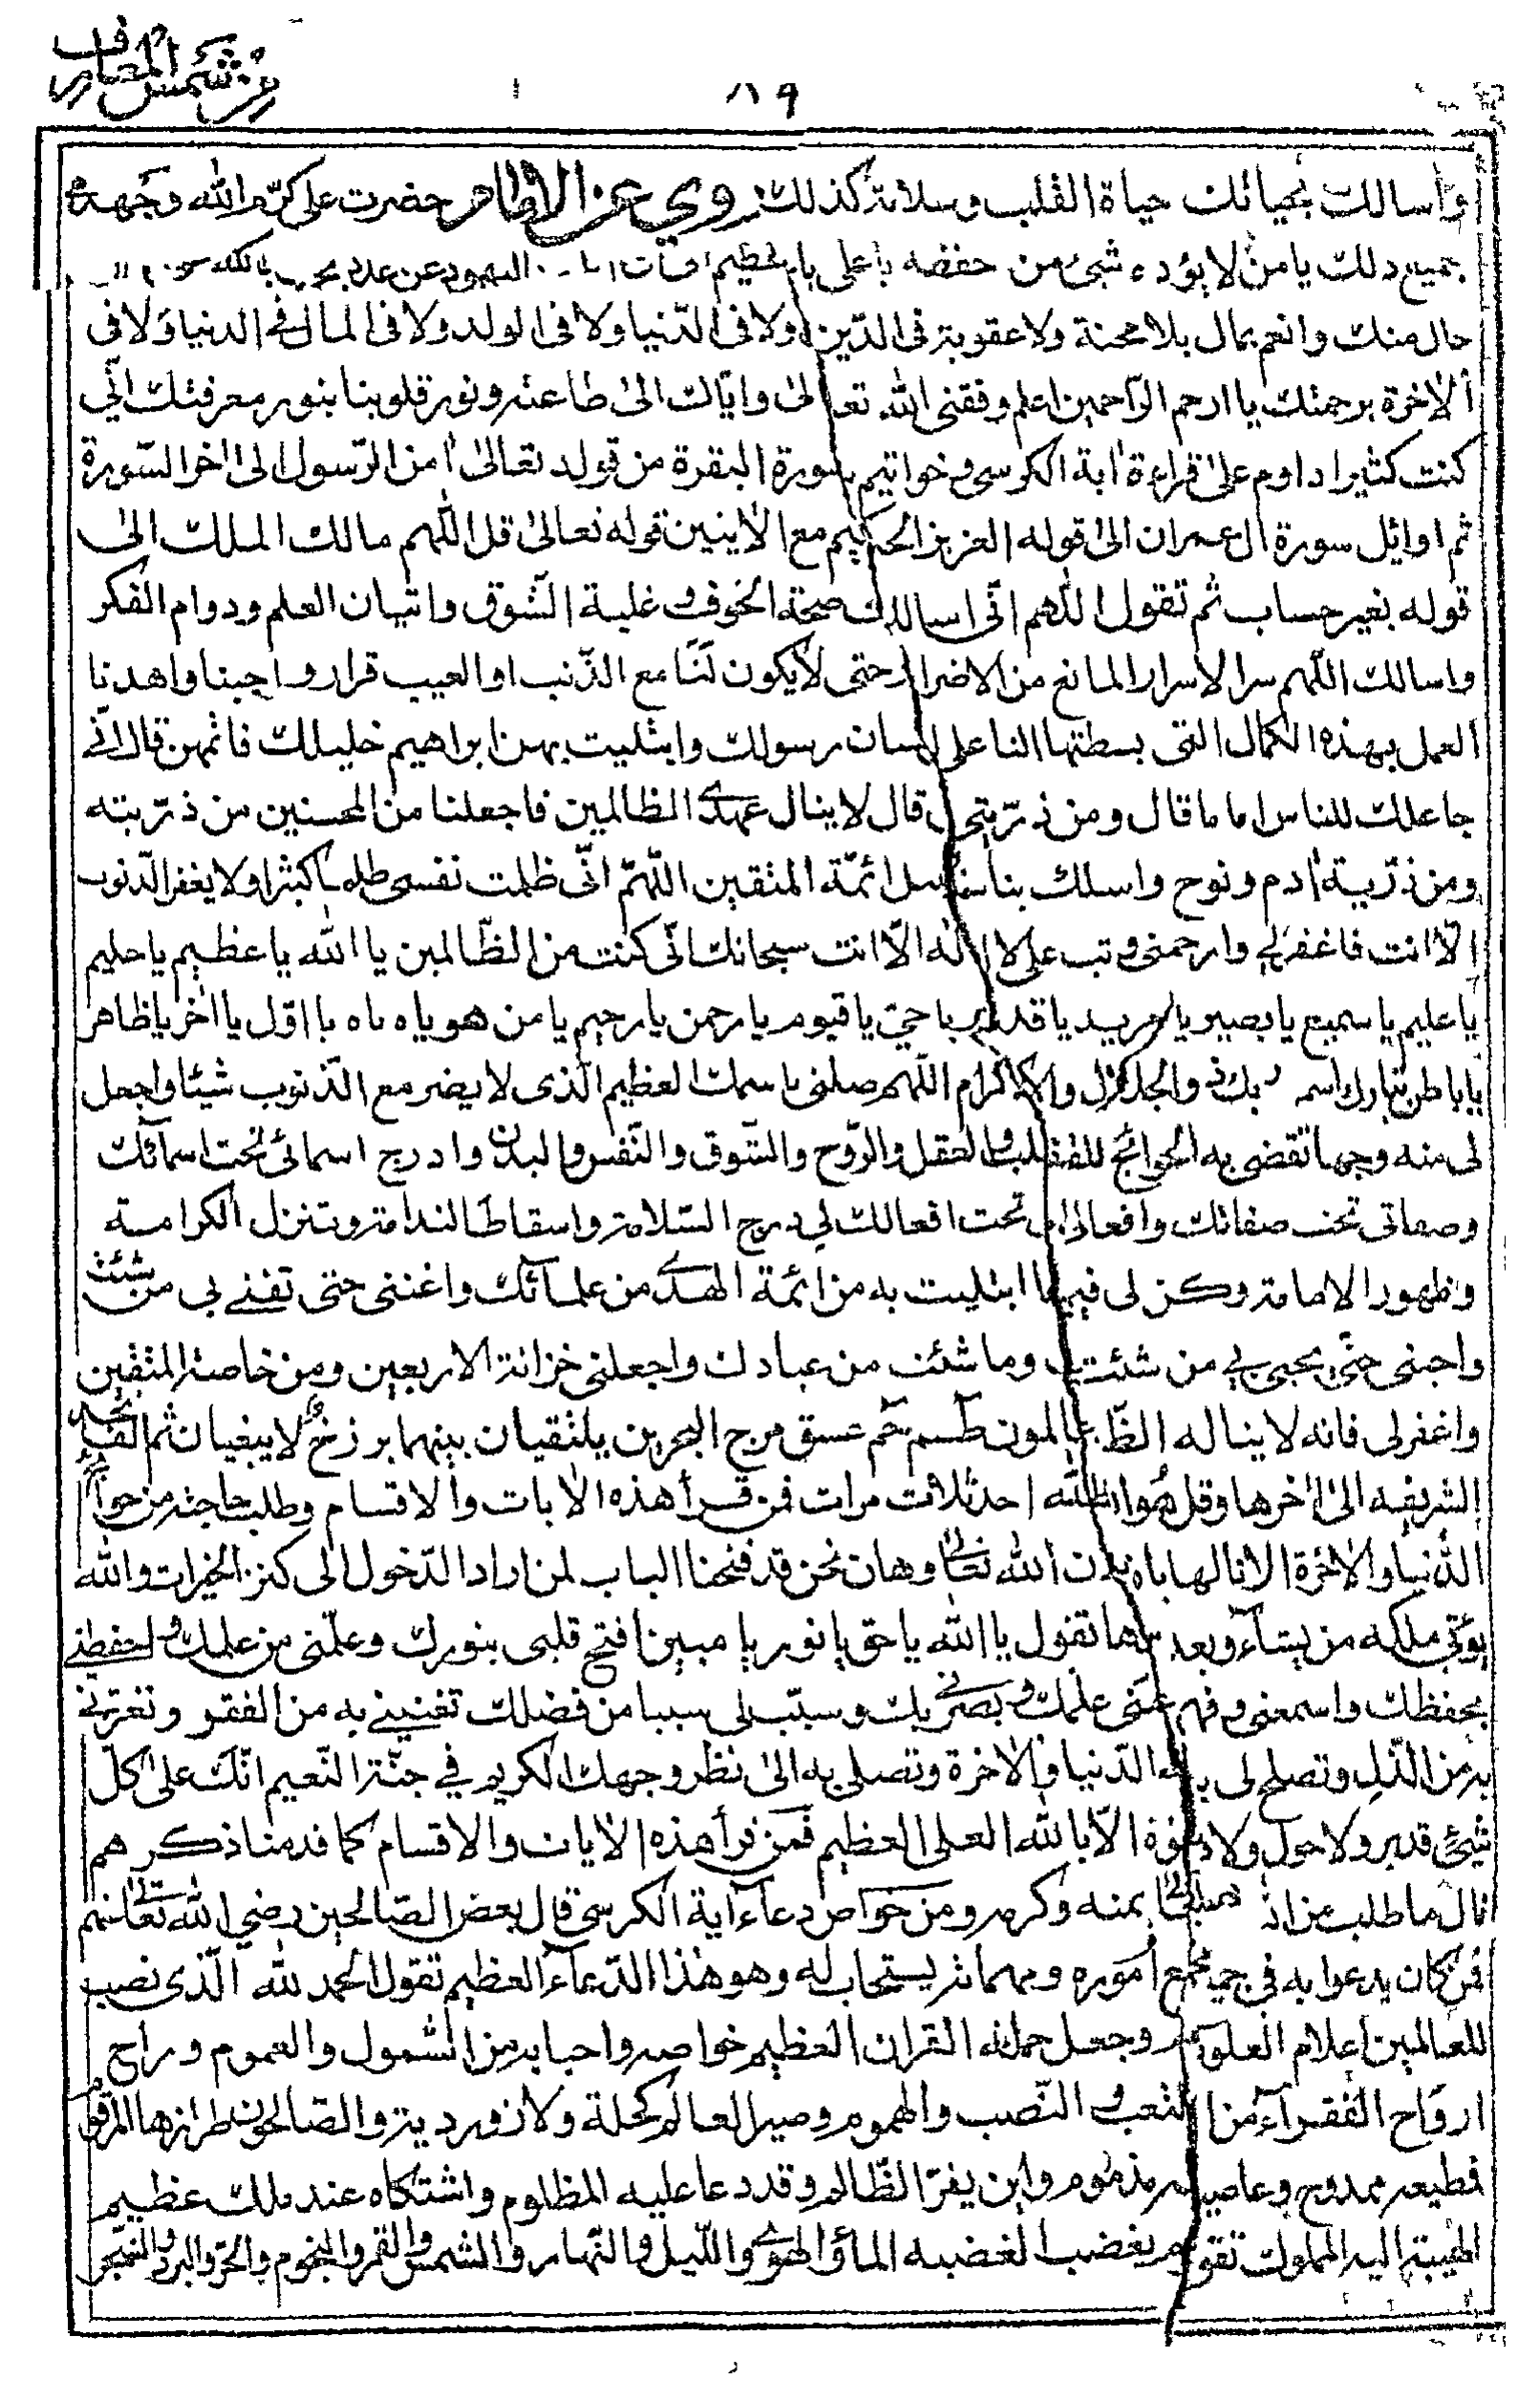 من شمس المعارف
٨٩
واسالك بحياتك حياة القلب وسلامة كذلك روي عن الامام حضرت على كرم الله وجهه
جميع ذلك يا من لا يؤده شيئ من حفظه يا على يا عظيم
حال منك وانعم بمال بلا محنة ولا عقوبة فى الدين ولا فى الدنيا ولا فى الولد ولا فى المال فى الدنيا ولا فى
الاخرة برحمتك يا ارحم الراحمين اعلم وفقنى الله تعالى واياك الى طاعته ونور قلوبنا بنور معرفتك انى
كنت كثيرا داوم على قراءة اية الكرسى وخواتيم سورة البقرة من قوله تعالى امن الرسول الى اخر السورة
ثم اوائل سورة ال عمران الى قوله العزيز الحكيم مع الايتين قوله تعالى قل اللهم مالك الملك الى
قوله بغير حساب ثم تقول اللهم انى اسالك صحة الخوف وغلبة الشوق واتيان العلم ودوام الفكر
واسالك اللهم سر الاسرار المانع من الاضرار حتى لا يكون لنا مع الذنب او العيب قرار واجبنا واهدنا
العمل بهذه الكمال التى بسطتها لنا على لسان رسولك وابتليت بهن ابراهيم خليلك فاتمهن قال انى
جاعلك للناس اماما قال ومن ذريتى قال لا ينال عهدى الظالمين فاجعلنا من المحسنين من ذريته
ومن ذرية ادم ونوح واسلك بنا سبل ائمة المتقين اللهم انى ظلمت نفسى ظلما كثيرا ولا يغفر الذنوب
الا انت فاغفر لى وارحمنى وتب على لا اله الا انت سبحانك انى كنت من الظالمين يا الله يا عظيم يا حليم
يا عليم يا سميع يا بصير يا مريد يا قدير يا حى يا قيوم يا رحمن يا رحيم يا من هو ياه ياه يا اول يا اخر يا ظاهر
يا باطن تبارك اسم ربك ذو الجلال والاكرام اللهم صلنى باسمك العظيم الذى لا يضر مع الذنوب شيئا واجعل
لى منه وجها تقضى به الحوائج للقلب والعقل والروح والشوق والنفس والبدن وادرج اسمائى تحت اسمائك
وصفاتى تحت صفاتك وافعالى تحت افعالك لى درج السلامة واسقاط الندامة وتنزل الكرامة
وظهور الامامة وكن لى فيما ابتليت به من ائمة الهدى من علمائك واغننى حتى تغنى بى من شئت
واحينى حتى يحيى بى من شئت وما شئت من عبادك واجعلنى خزانة الاربعين ومن خاصة المتقين
واغفر لى فانه لا يناله الظالمون طسم حم عسق مرج البحرين يلتقيان بينهما برزخ لا يبغيان ثم الفاتحة
الشريفه الى اخرها وقل هو الله احد ثلاث مرات فمن قرأ هذه الايات والاقسام وطلب حاجته من حوائج
الدنيا والاخرة الا نالها باذن الله تعالى وهان نحن قد فتحنا الباب لمن اراد الدخول الى كنز الخيرات والله
يؤتى ملكه من يشاء وبعد تمامها تقول يا الله يا حق يا نور يا مبين افتح قلبى بنورك وعلمنى من علمك واحفظنى
بحفظك واسمعنى وفهمنى علمك وبصرنى بك وسبب لى سببا من فضلك تغنينى به من الفقر وتعزنى
به من الذل وتصلح لى به الدنيا والاخرة وتصلى به الى نظر وجهك الكريم فى جنة النعيم انك على كل
شيئ قدير ولا حول ولا قوة الا بالله العلى العظيم فمن قرأ هذه الايات والاقسام كما قدمنا ذكرهم
نال ما طلب من الله تعالى بمنه وكرمه ومن خواص دعاء آية الكرسى قال بعض الصالحين رضي الله تعالى عنهم
فمن كان يدعوا به فى جميع اموره ومهماته يستجاب له وهو هذا الدعاء العظيم تقول الحمد لله الذى نصب
للعالمين اعلام العلوم وجعل حملة القران العظيم خواصه واحبابه من الشمول والعموم وراح
ارواح الفقراء من التعب والنصب والهموم وصير العالم كحلة ولازوردية والصالحون طرازها المرقوم
فطيعه ممدوح وعاصيه مذموم واين يفر الظالم وقد دعا عليه المظلوم واشتكاه عند ملك عظيم
الهيبة اليه الملوك تقوم يغضب لغضبه الماء والهوى والليل والنهار والشمس والقمر والنجوم والحر والبرد والشجر